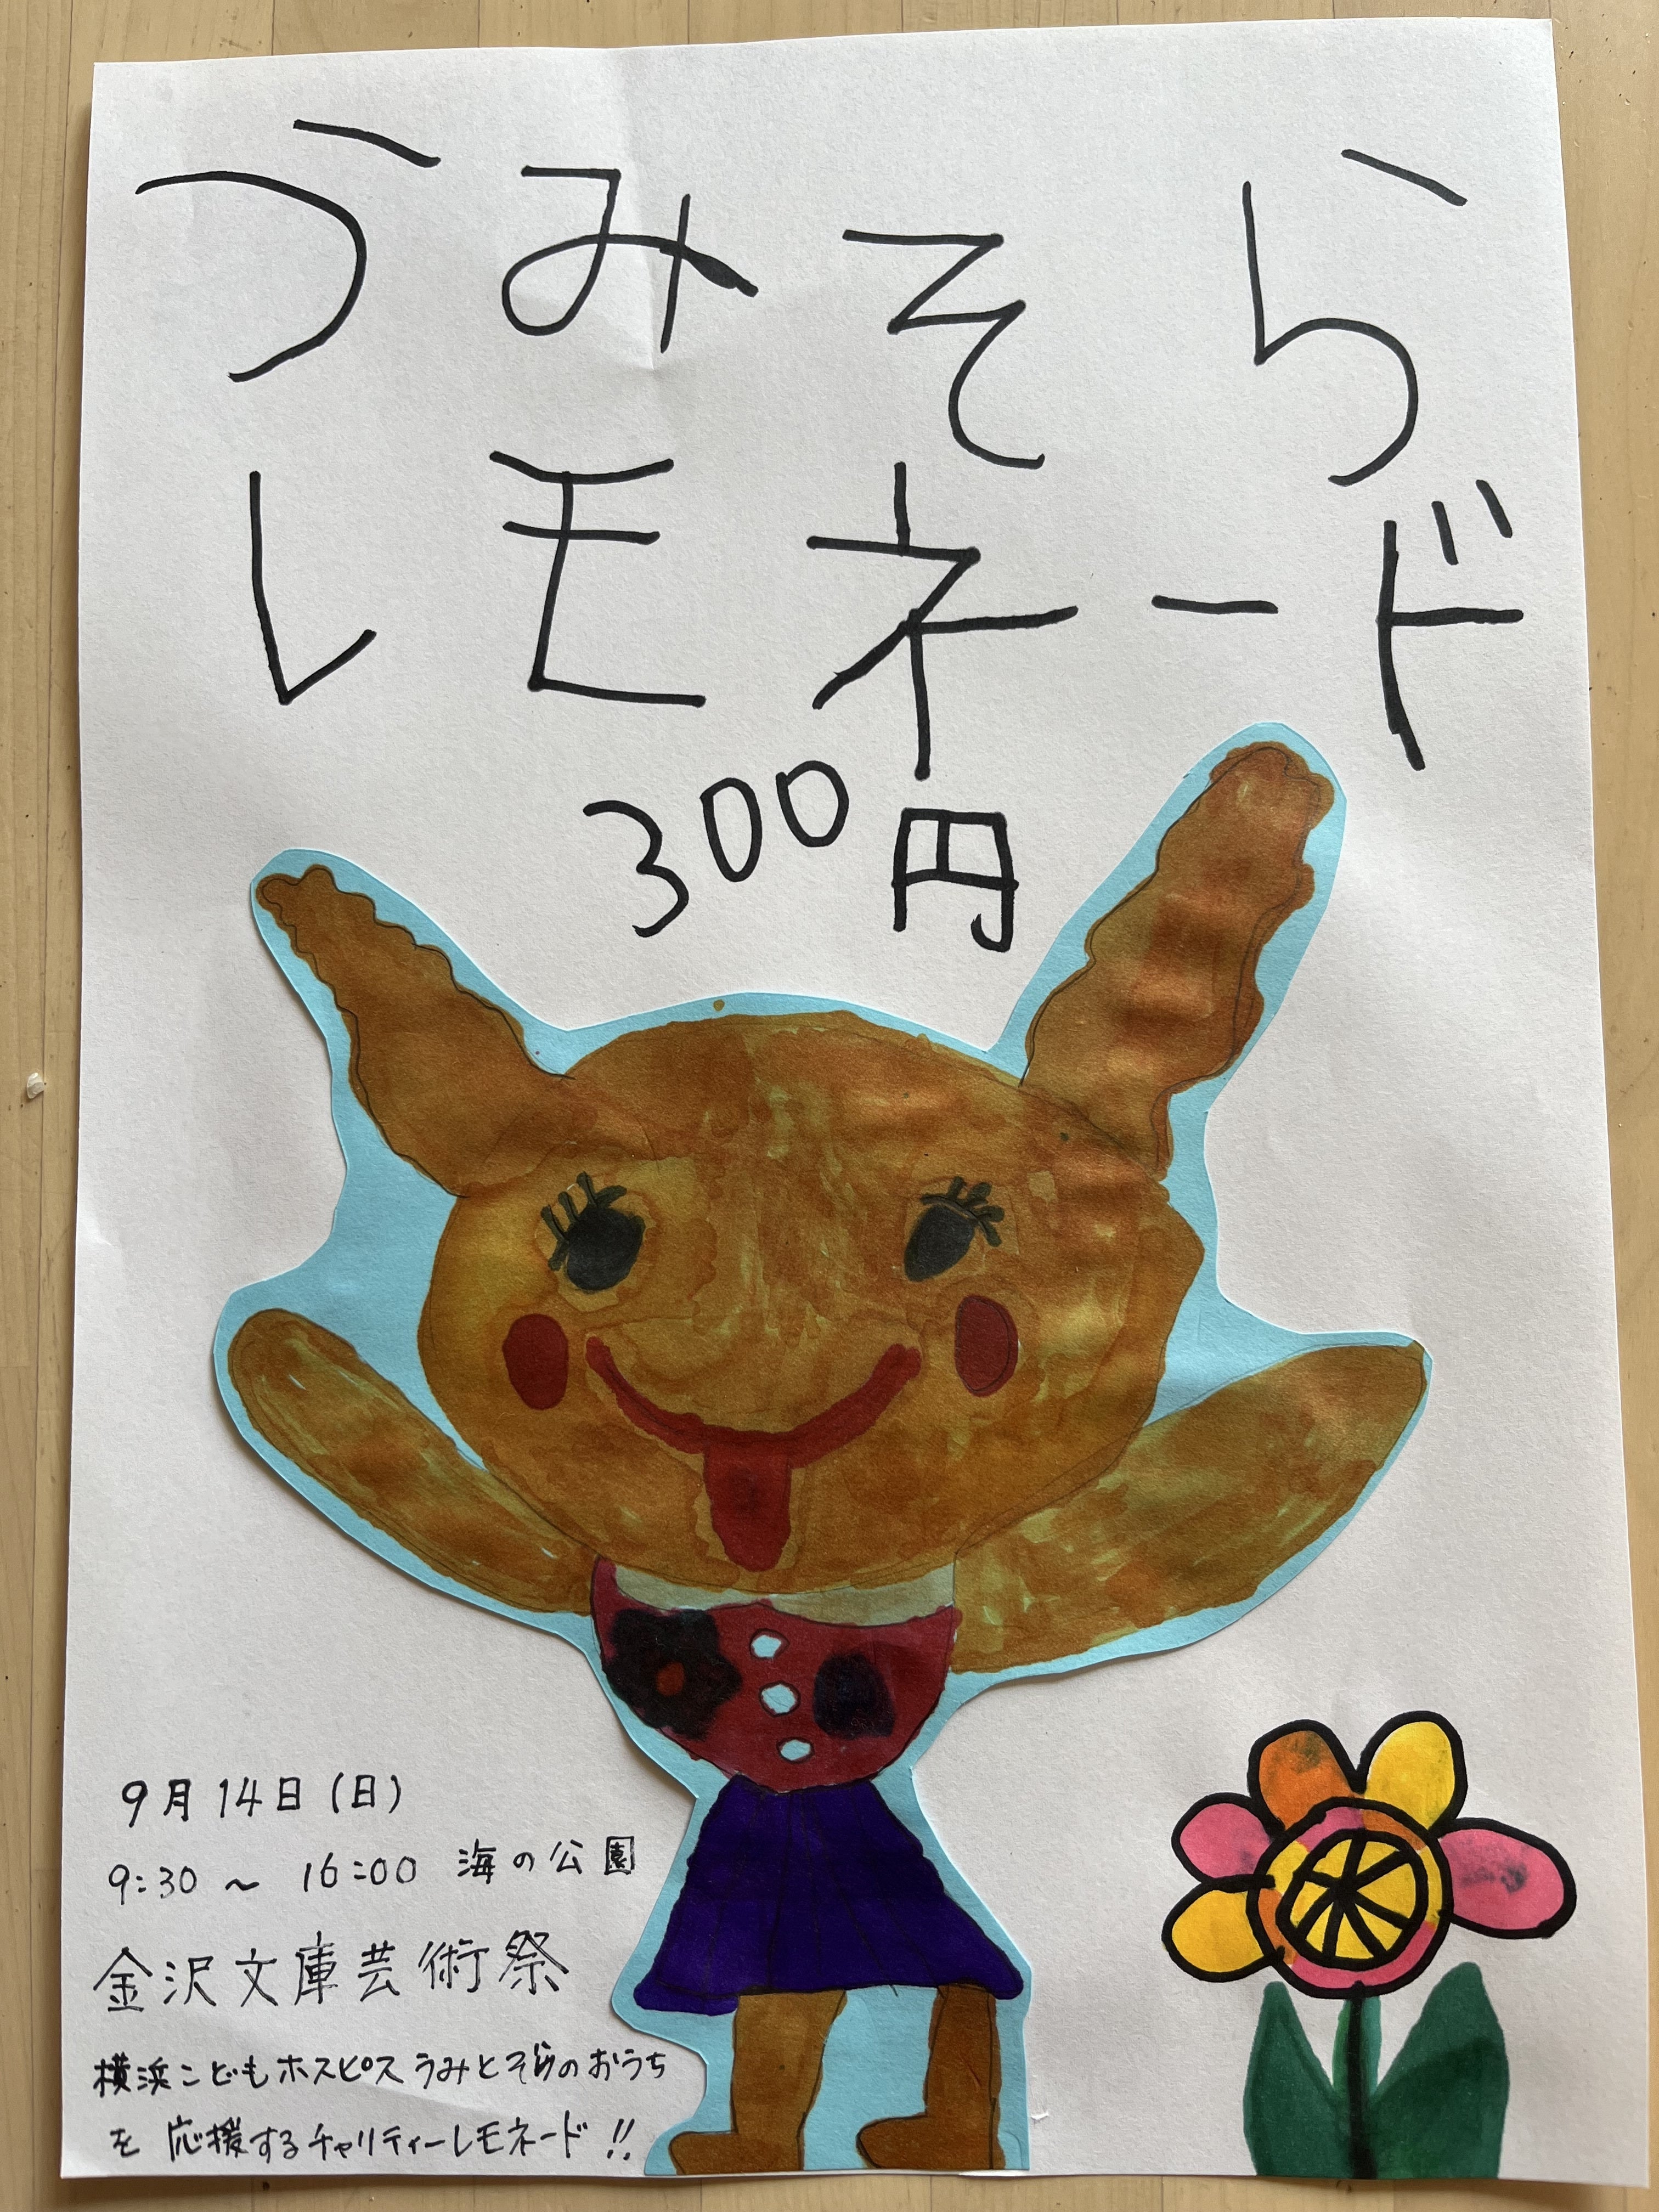 うみそら
レモネード
300円
9月14日(日)
9:30 ~ 16:00 海の公園
金沢文庫芸術祭
横浜こどもホスピス うみとそらのおうち
を 応援するチャリティーレモネード!!